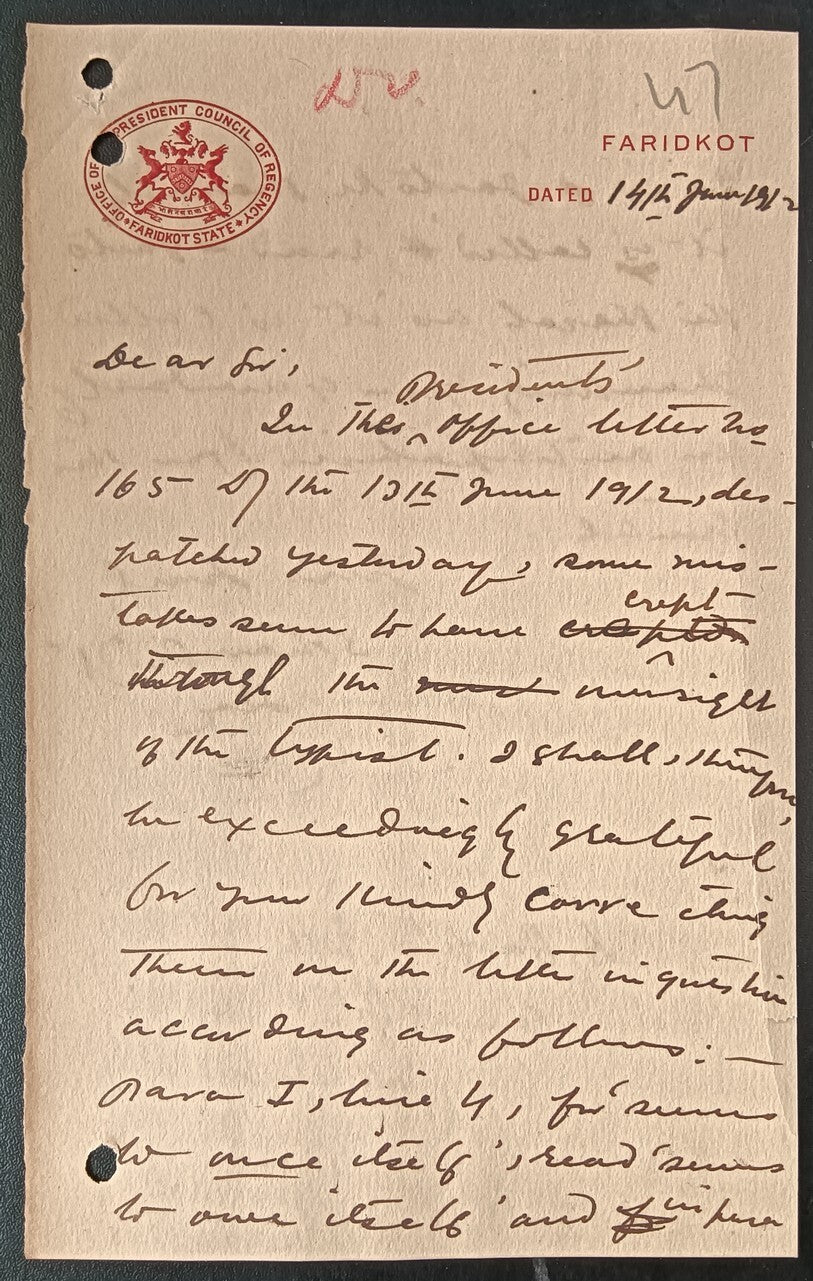 OFFICE OF PRESIDENT COUNCIL OF REGENCY
FARIDKOT STATE
47
FARIDKOT
DATED 14th June 1912
Dear Sir,
Presidents'
In this office letter No
165 of the 13th June 1912, des-
patched yesterday, some mis-
takes seem to have crept
through the oversight
of the typist. I shall, therefore,
be exceedingly grateful
for your kindly correcting
them in the letter in question
according as follows:—
Para I, line 4, for 'seems
to once itself', read 'seems
to owe itself' and in para